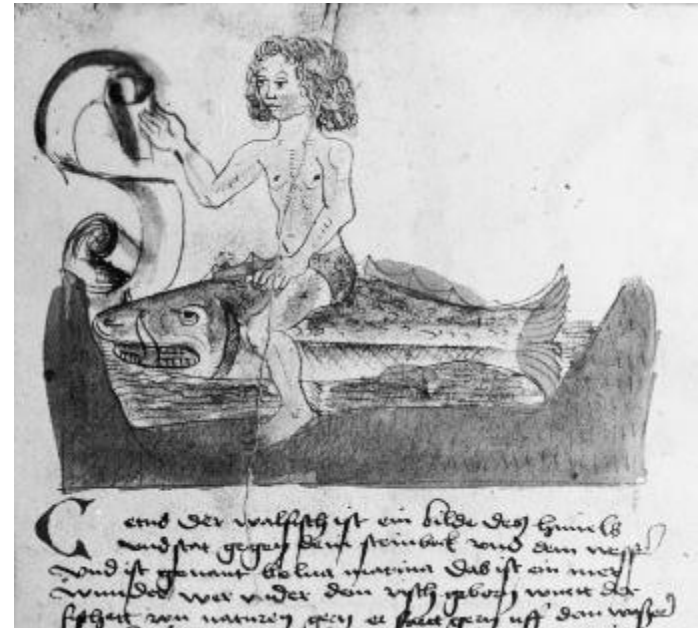 Cetus der walfisch ist ein bilde des himels
und stat gegen dem steinbok und dem
und ist genant belua marina das ist ein mer
wunder wer under dem visch geborn wurt der
von naturen gern er gern uff dem wasser